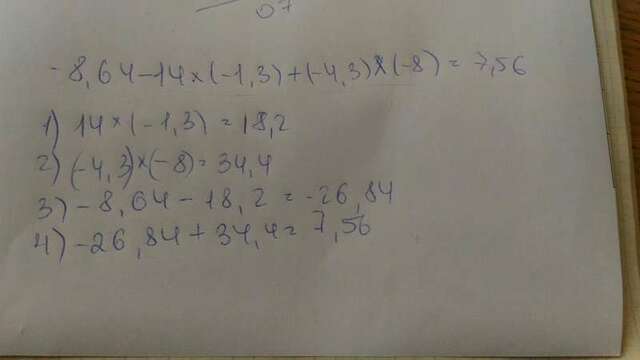 07
-8,64-14×(-1,3)+(-4,3)×(-8)=7,56
1) 14×(-1,3)=18,2
2) (-4,3)×(-8)=34,4
3) -8,64-18,2=-26,84
4) -26,84+34,4=7,56